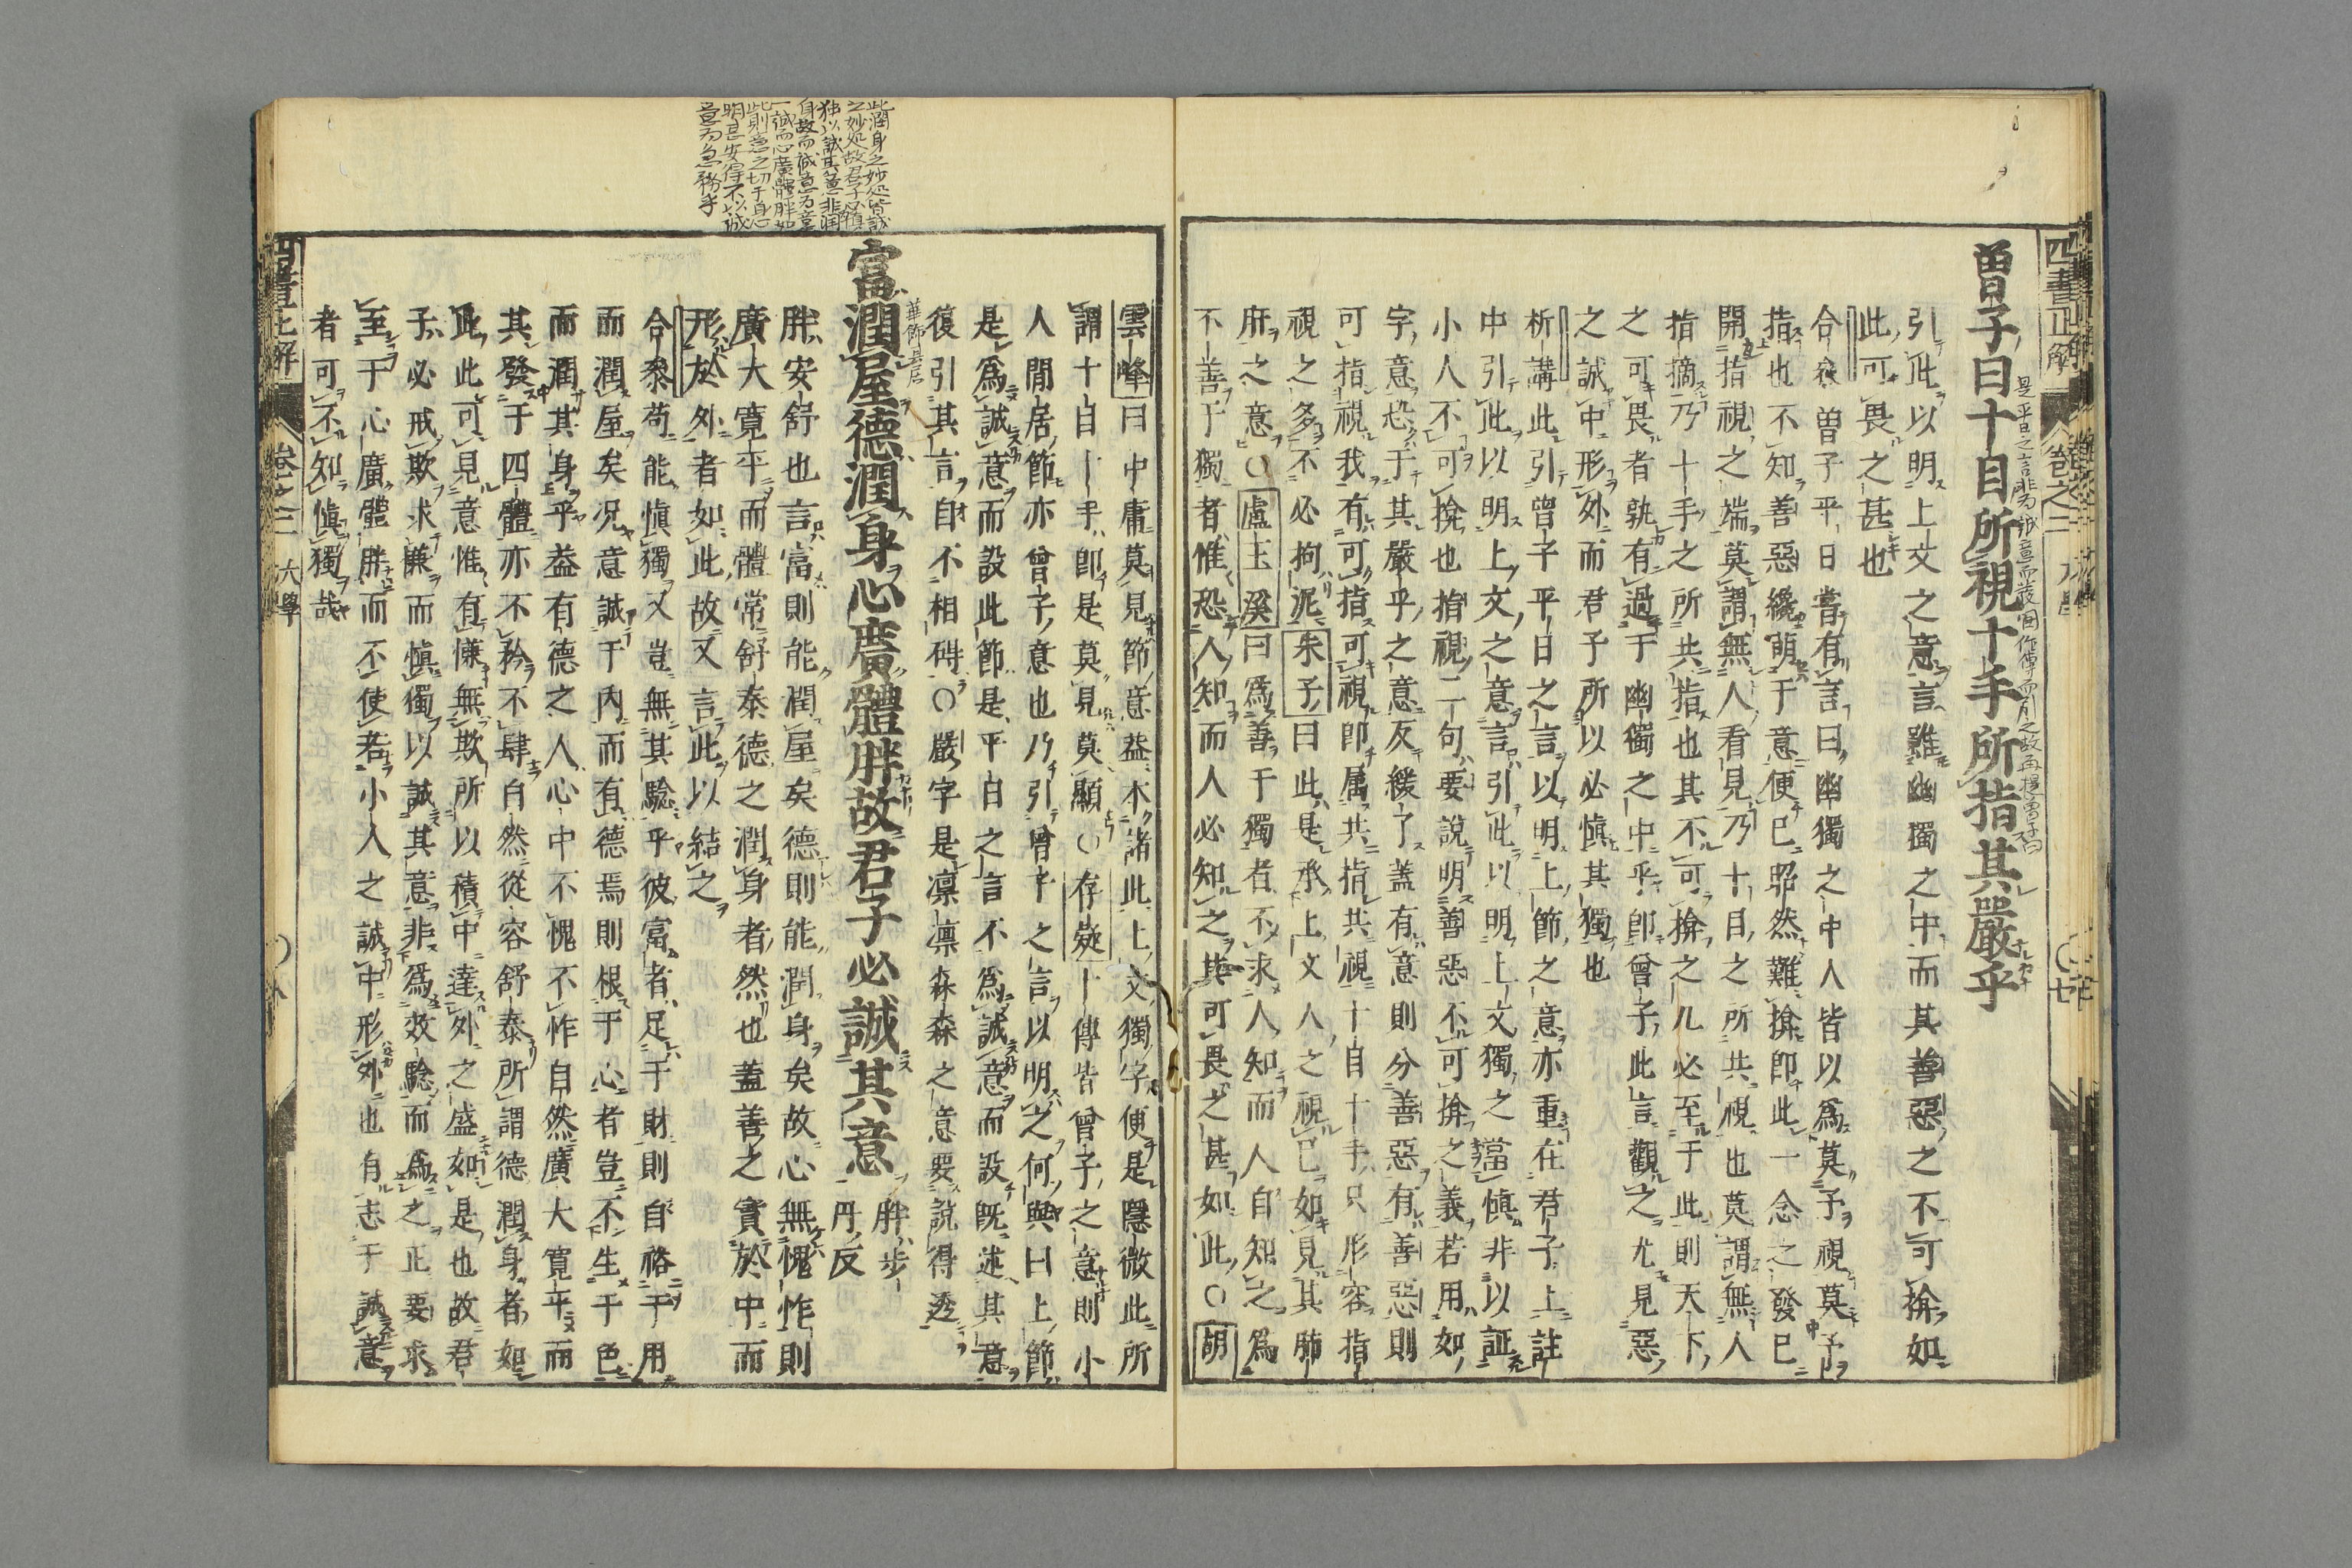 曾子曰十目所視十手所指其嚴乎
引此以明上文之意言雖幽獨之中而其善惡之不可揜如
此可畏之甚也
合參曾子平日嘗有言曰幽獨之中人皆以為莫予視莫予
指也不知善惡纔萌于意便已昭然難揜即此一念之發已
開指視之端莫謂無人看見乃十目之所共視也莫謂無人
指摘乃十手之所共指也其不可揜之几必至于此則天下
之可畏者孰有過于幽獨之中乎即曾子此言觀之尤見惡
之誠中形外而君子所以必慎其獨也
析講此引曾子平日之言以明上節之意亦重在君子上註
中引此以明上文之意言引此以明上文獨之當慎非以証
小人不可揜也指視二句要說明善惡不可揜之義若用如
字意恐于其嚴乎之意反緩了蓋有意則分善惡有善惡則
可指視我有可指可視即属共指共視十目十手只形容指
視之多不必拘泥朱子曰此是承上文人之視已如見其肺
肝之意〇盧玉溪曰為善于獨者不求人知而人自知之為
不善于獨者惟恐人知而人必知之其可畏之甚如此〇胡
雲峰曰中庸莫見節意蓋本諸此上文獨字便是隱微此所
謂十目十手即是莫見莫顯〇存疑十傳皆曾子之意則小
人閒居節亦曾子意也乃引曾子之言以明之何與曰上節
是為誠意而設此節是平日之言不為誠意而設既述其意
復引其言自不相碍〇嚴字是凛凛森森之意要說得透
富潤屋德潤身心廣體胖故君子必誠其意
胖步
丹反
胖安舒也言富則能潤屋矣德則能潤身矣故心無愧怍則
廣大寬平而體常舒泰德之潤身者然也蓋善之實於中而
形於外者如此故又言此以結之
合參苟能慎獨又豈無其驗乎彼富者足于財則自裕于用
而潤屋矣况意誠于内而有德焉則根于心者豈不生于色
而潤其身乎蓋有德之人心中不愧不怍自然廣大寬平而
其發于四體亦不矜不肆自然從容舒泰所謂德潤身者如
此此可見意惟有慊無欺所以積中達外之盛如是也故君
子必戒欺求慊而慎獨以誠其意非為效驗而為之正要求
至于心廣體胖而不使若小人之誠中形外也有志于誠意
者可不知慎獨哉
此潤身之妙処皆誠
之妙処故君子必慎
独以誠其意非潤
身故而誠意为意
一誠而心廣體胖如
此則意之切于身心
明甚安得不以誠
意为急務乎
四書正解
卷之三
大學